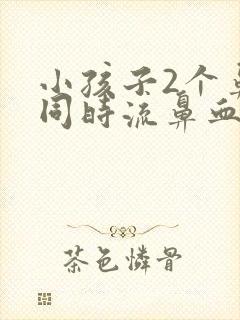 小孩子2个鼻
同时流鼻血
茶色憐骨